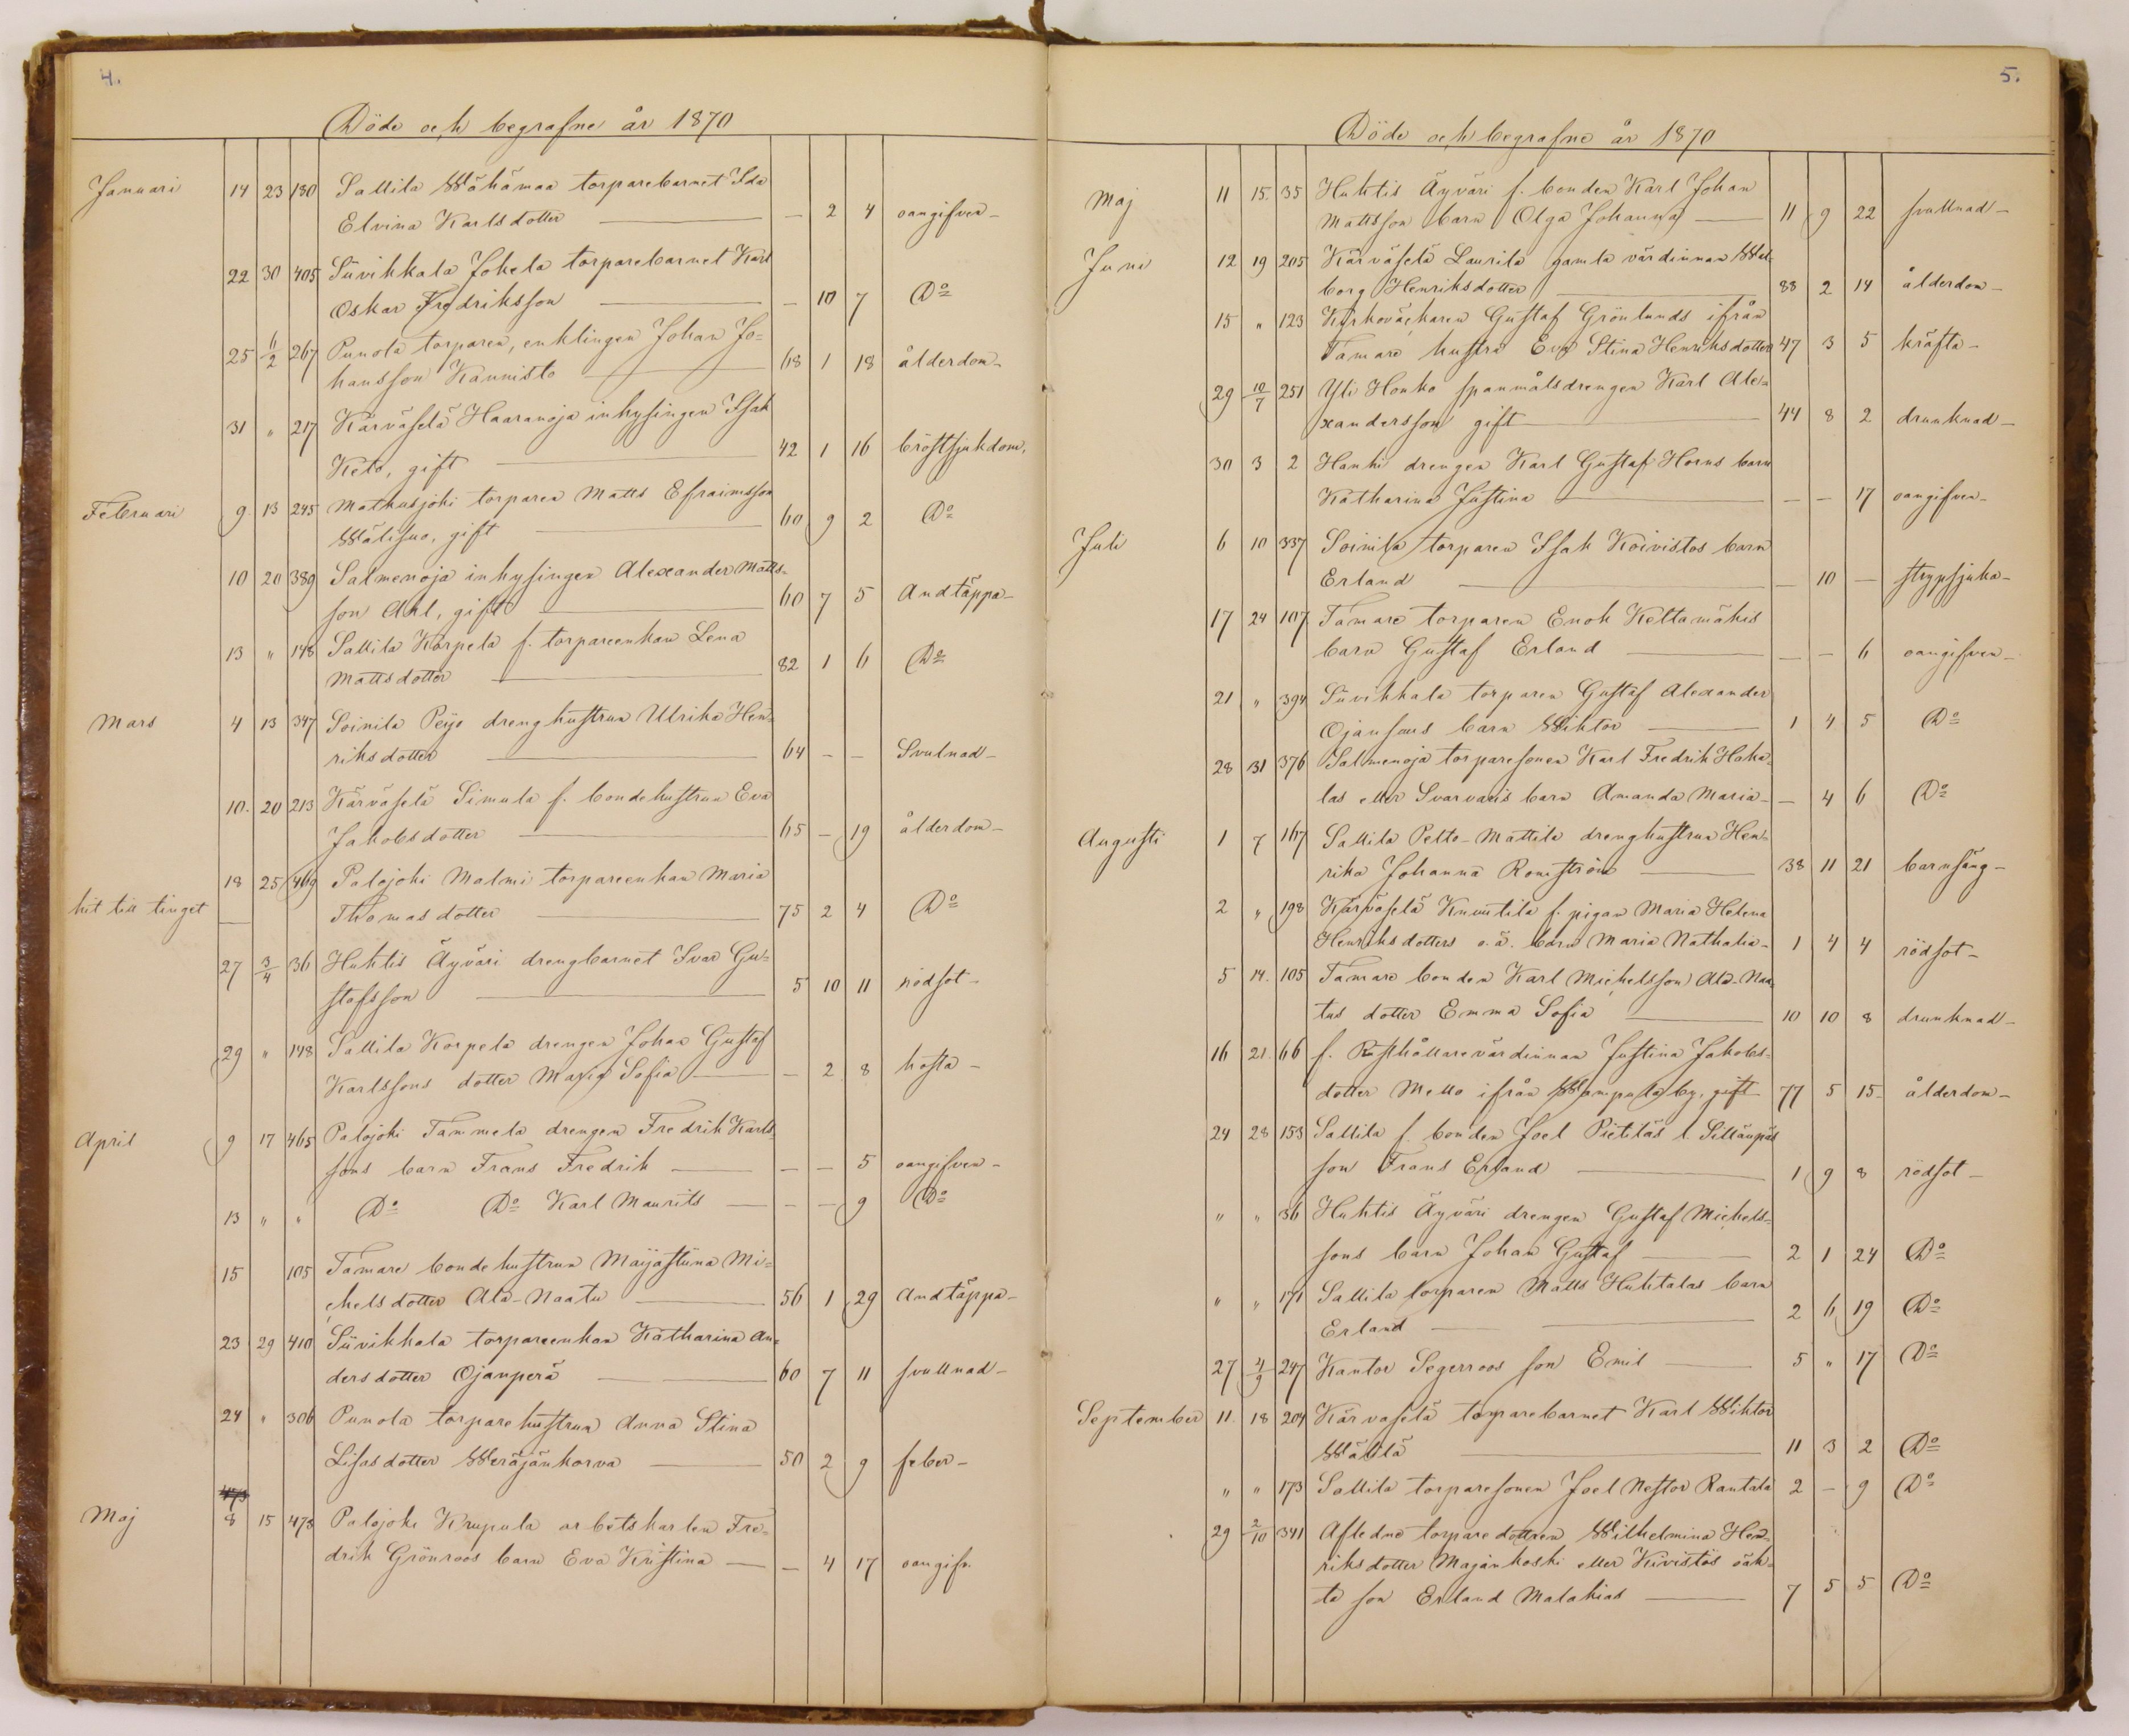 4.
Döde och begrafne år 1870
Januari 14 23 130 Sallila Wähämaa torparebarnet Ida
Elvina Karlsdotter — — 2 4 oangifven —
22 30 405 Süvikkala Jokela torparebarnet Karl
Oskar Fredriksson — — 10 7 Do
25 6/2 267 Punola torparen, enklingen Johan Jo=
hansson Kannisto — 68 1 18 ålderdom —
31 " 217 Kärväselä Haaranoja inhysingen Isak
Keto, gift — 42 1 16 bröstsjukdom,
Februari 9 13 245 Mathusjoki torparen Matts Efraimsson
Wälisuo, gift — 60 9 2 Do
10 20 389 Salmenoja inhysingen Alexander Matts=
son Ahl, gift — 60 7 5 Andtäppa —
13 " 148 Sallila Korpela f. torpareenkan Lena
Mattsdotter — 82 1 6 Do
Mars 4 13 347 Soinila Peijo drenghustrun Ulrika Hen=
riksdotter — 64 — — Svulnad —
10. 20 213 Kärväselä Simula f. bondehustrun Eva
Jakobsdotter — 65 — 19 ålderdom —
18 25 469 Palojoki Malmi torpareenkan Maria
hit till tinget Thomasdotter — 75 2 4 Do
27 3/4 36 Huhtis Äyväri drengbarnet Ivar Gu=
stafsson — 5 10 11 rödsot —
29 " 148 Sallila Korpela drengen Johan Gustaf
Karlssons dotter Maria Sofia — — 2 8 hosta —
April 9 17 465 Palojoki Tammela drengen Fredrik Karls=
sons barn Frans Fredrik — — — 5 oangifven —
13 " " Do Do Karl Maurits — — — 9 Do
15 105 Tamare bondehustrun Majastina Mi=
chelsdotter Ala-Naatu — 56 1 29 Andtäppa —
23 29 410 Süvikkala torpareenkan Katharina An=
dersdotter Ojanperä — 60 7 11 svullnad —
24 " 306 Punola torparehustrun Anna Stina
Lisasdotter Weräjänkorva — 50 2 9 feber —
Maj 8 15 473 Palojoki Krupula arbetskarlen Fre=
drik Grönroos barn Eva Kristina — — 4 17 oangifv.
5.
Döde och begrafne år 1870
Maj 11 15. 35 Huhtis Äyväri f. bonden Karl Johan
Mattsson barn Olga Johanna — 11 9 22 svullnad —
Juni 12 19 205 Kärväselä Laurila gamla värdinnan Wal=
borg Henriksdotter — 88 2 14 ålderdom —
15 " 123 Kyrkoväckaren Gustaf Grönlunds ifrån
Tamare hustru Eva Stina Henriksdotter 47 3 5 kräfta —
29 10/7 251 Yli Honko spanmålsdrengen Karl Ale=
xandersson gift — 44 8 2 drunknad —
30 3 2 Hanhi drengen Karl Gustaf Horns barn
Katharina Justina — — — 17 oangifven —
Juli 6 10 337 Soinila torparen Isak Koivistos barn
Erland — — 10 — strypsjuka —
17 24 107 Tamare torparen Enok Keltamäkis
barn Gustaf Erland — — — 6 oangifven —
21 " 394 Süvikkala torparen Gustaf Alexander
Ojansuus barn Wiktor — 1 4 5 Do
28 31 376 Salmenoja torparesonen Karl Fredrik Haka=
las eller Svarvaris barn Amanda Maria — — 4 6 Do
Augusti 1 7 167 Sallila Pelto-Mattila drenghustrun Hen=
rika Johanna Romström — 38 11 21 barnsäng —
2 " 198 Kärväselä Knuutila f. pigan Maria Helena
Henriksdotters o.ä. barn Maria Nathalia — 1 4 4 rödsot —
5 14. 105 Tamare bonden Karl Michelsson Ala-Naa=
tus dotter Emma Sofia — 10 10 8 drunknad —
16 21. 66 f. Rusthållarevärdinnan Justina Jakobs=
dotter Mello ifrån Wampula by, gift 77 5 15 ålderdom —
24 28 153 Sallila f. bonden Joel Pietiläs l. Sillänpäs
son Frans Erland — 1 9 8 rödsot —
" " 36 Huhtis Äyväri drengen Gustaf Michels=
sons barn Johan Gustaf — 2 1 24 Do
" " 171 Sallila torparen Matts Huhtalas barn
Erland — 2 6 19 Do
27 4/9 247 Kantor Segerroos son Emil — 5 " 17 Do
September 11. 18 204 Kärvaselä torparebarnet Karl Wiktor
Wälilä — 11 3 2 Do
" " 173 Sallila torparesonen Joel Nestor Rantala 2 — 9 Do
29 2/10 341 Afledne torparedottren Wilhelmina Hen=
riksdotter Majankoski eller Kivistös oäk=
ta son Erland Malakias — 7 5 5 Do